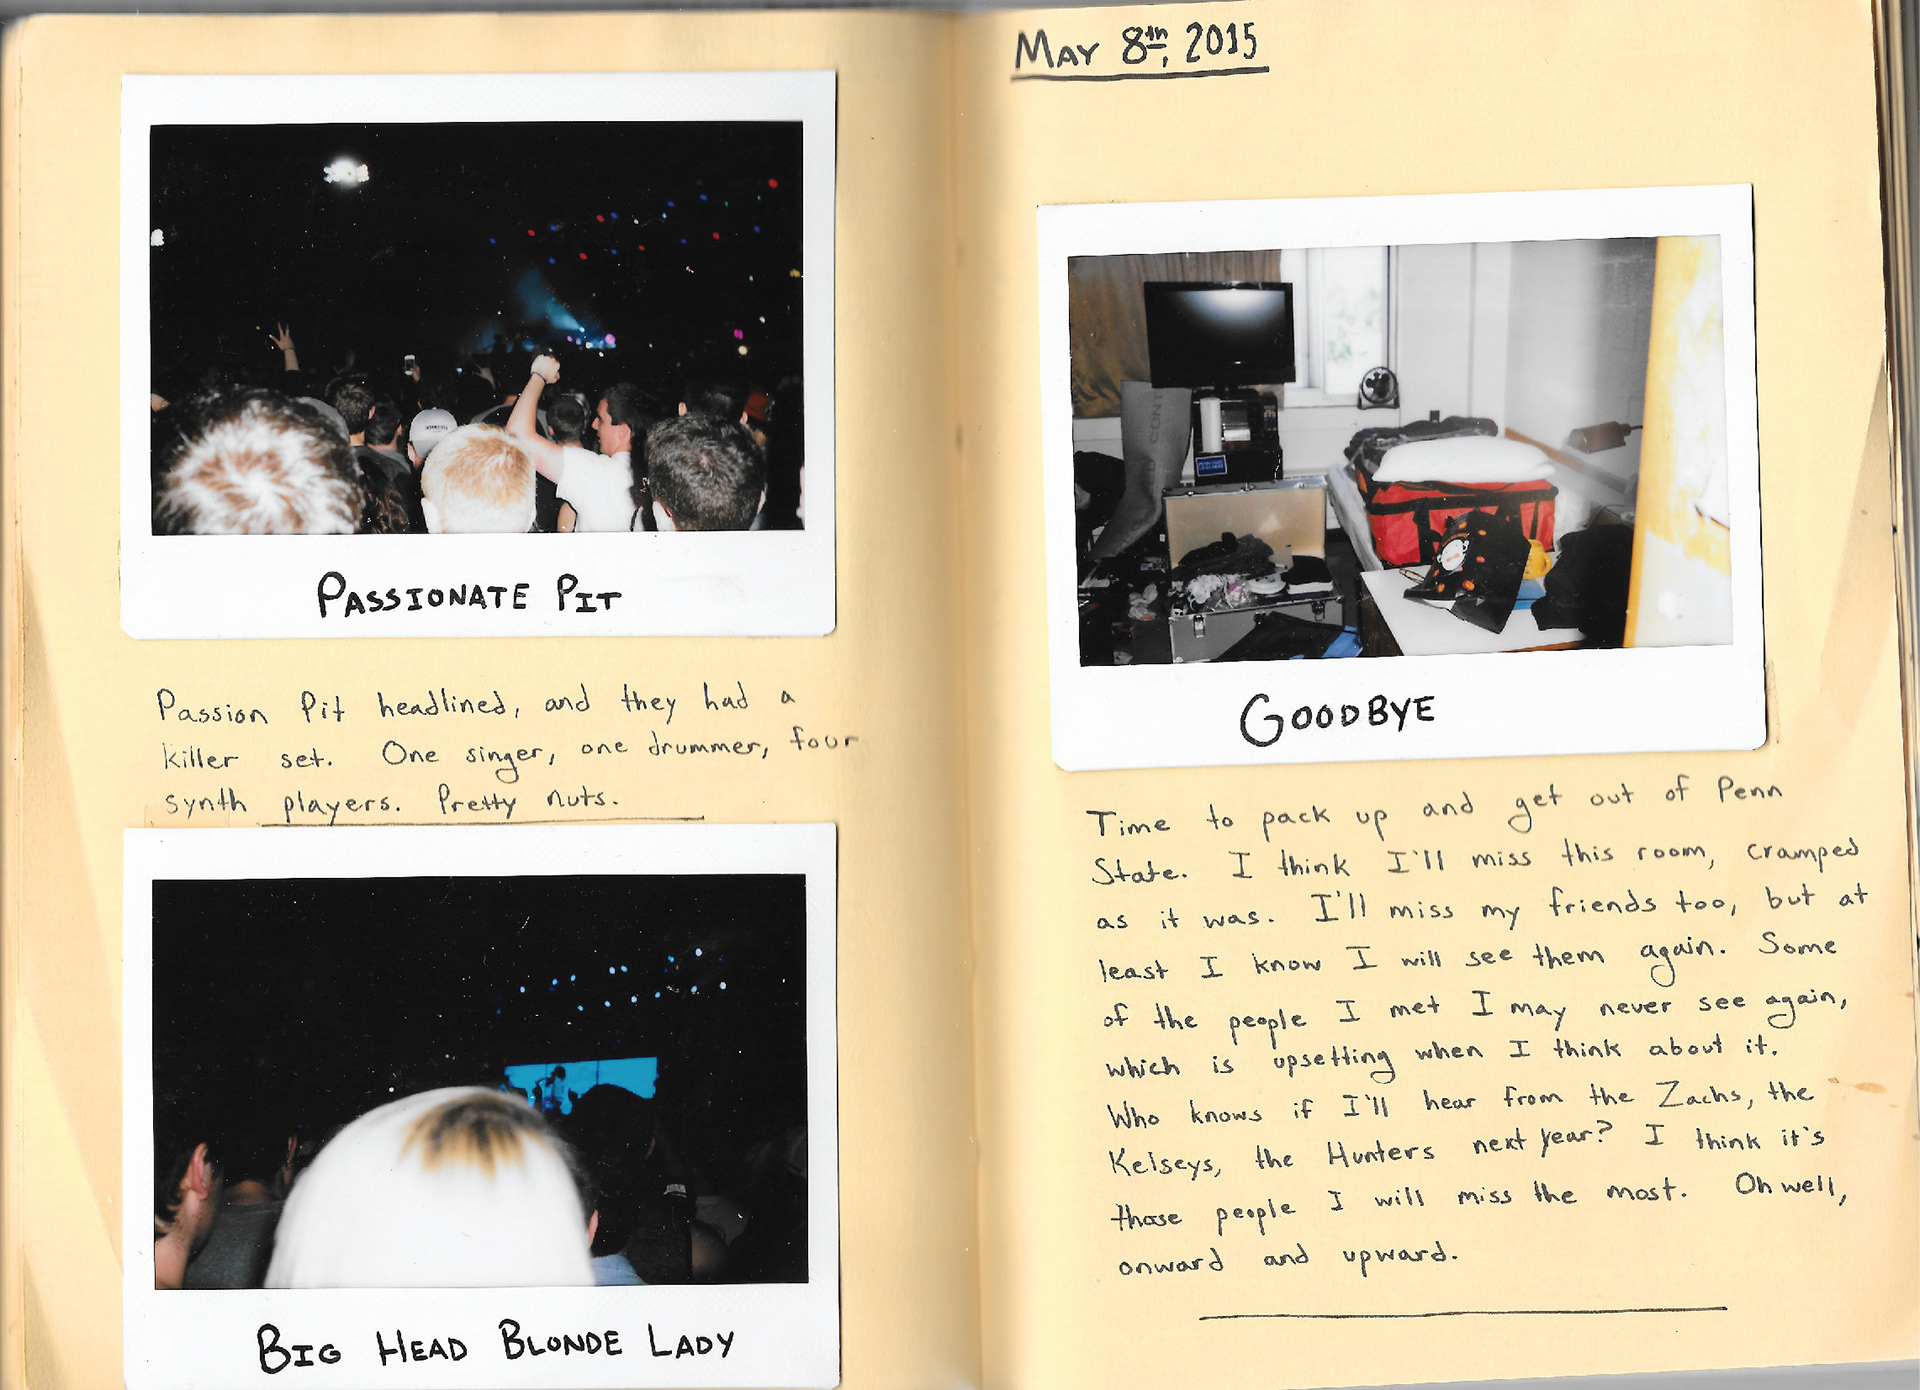 PASSIONATE PIT
Passion Pit headlined, and they had a
killer set. One singer, one drummer, four
synth players. Pretty nuts.
BIG HEAD BLONDE LADY
MAY 8th, 2015
GOODBYE
Time to pack up and get out of Penn
State. I think I'll miss this room, cramped
as it was. I'll miss my friends too, but at
least I know I will see them again. Some
of the people I met I may never see again,
which is upsetting when I think about it.
Who knows if I'll hear from the Zachs, the
Kelseys, the Hunters next year? I think it's
those people I will miss the most. Oh well,
onward and upward.